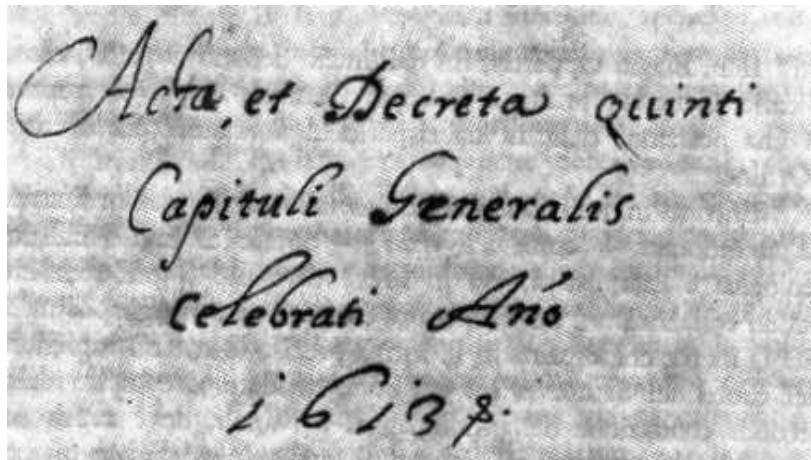 Acta, et Decreta quinti
Capituli Generalis
celebrati Año
1613